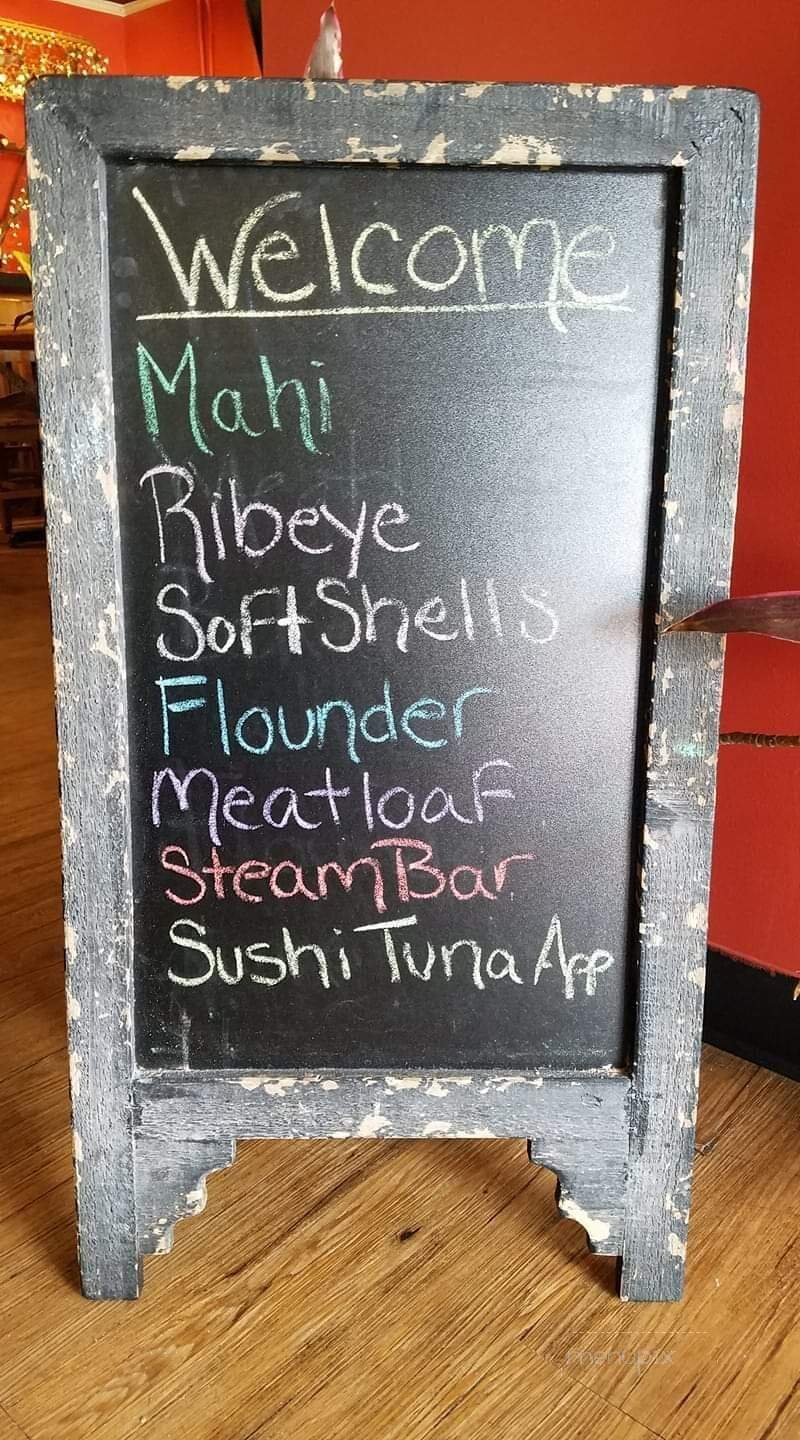 Welcome
Mahi
Ribeye
Soft Shells
Flounder
Meatloaf
Steam Bar
Sushi Tuna App
menupix